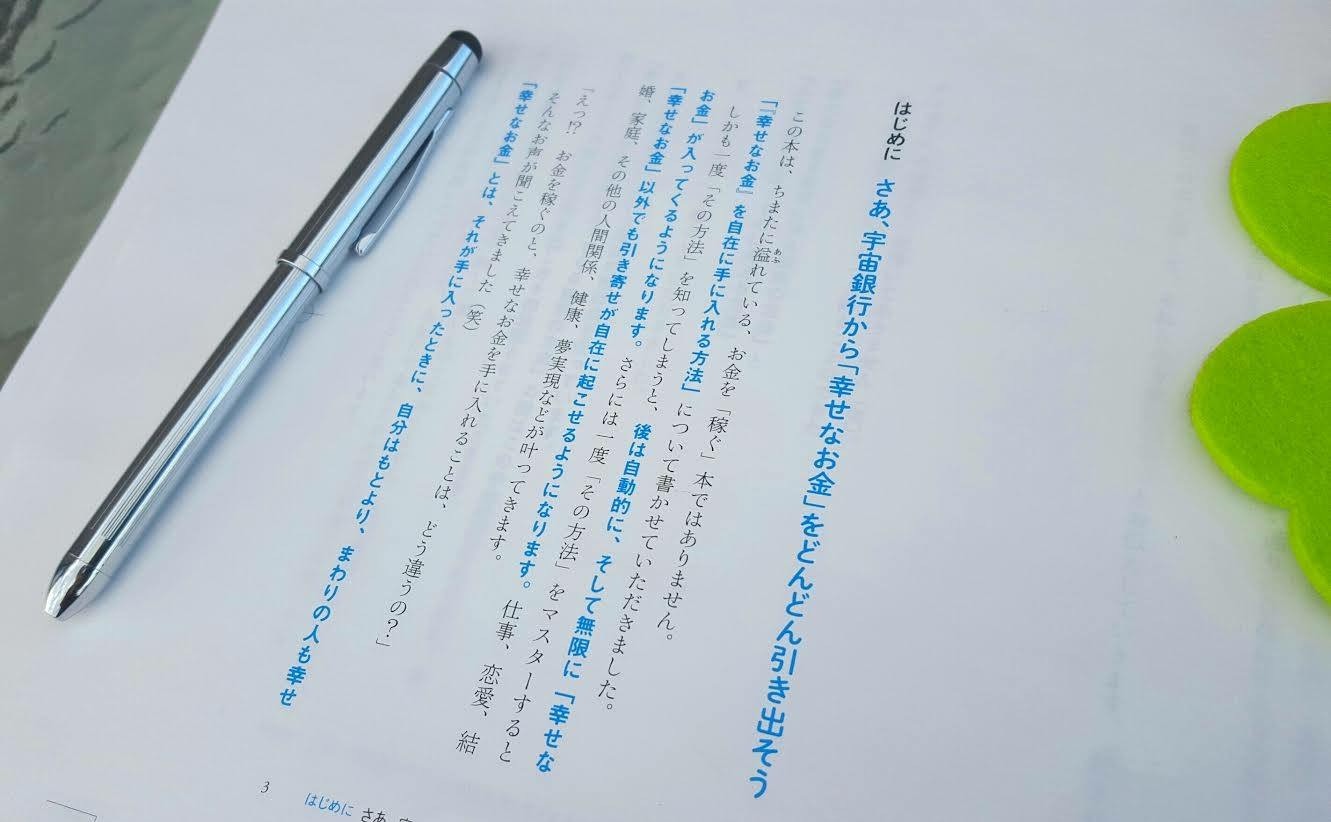 はじめに
さあ、宇宙銀行から「幸せなお金」をどんどん引き出そう
この本は、ちまたに溢れている、お金を「稼ぐ」本ではありません。
「『幸せなお金』を自在に手に入れる方法」について書かせていただきました。
しかも一度「その方法」を知ってしまうと、後は自動的に、そして無限に「幸せな
お金」が入ってくるようになります。さらには一度「その方法」をマスターすると
「幸せなお金」以外でも引き寄せが自在に起こせるようになります。仕事、恋愛、結
婚、家庭、その他の人間関係、健康、夢実現などが叶ってきます。
「えっ!? お金を稼ぐのと、幸せなお金を手に入れることは、どう違うの?」
そんなお声が聞こえてきました(笑)
「幸せなお金」とは、それが手に入ったときに、自分はもとより、まわりの人も幸せ
3
はじめに さあ、